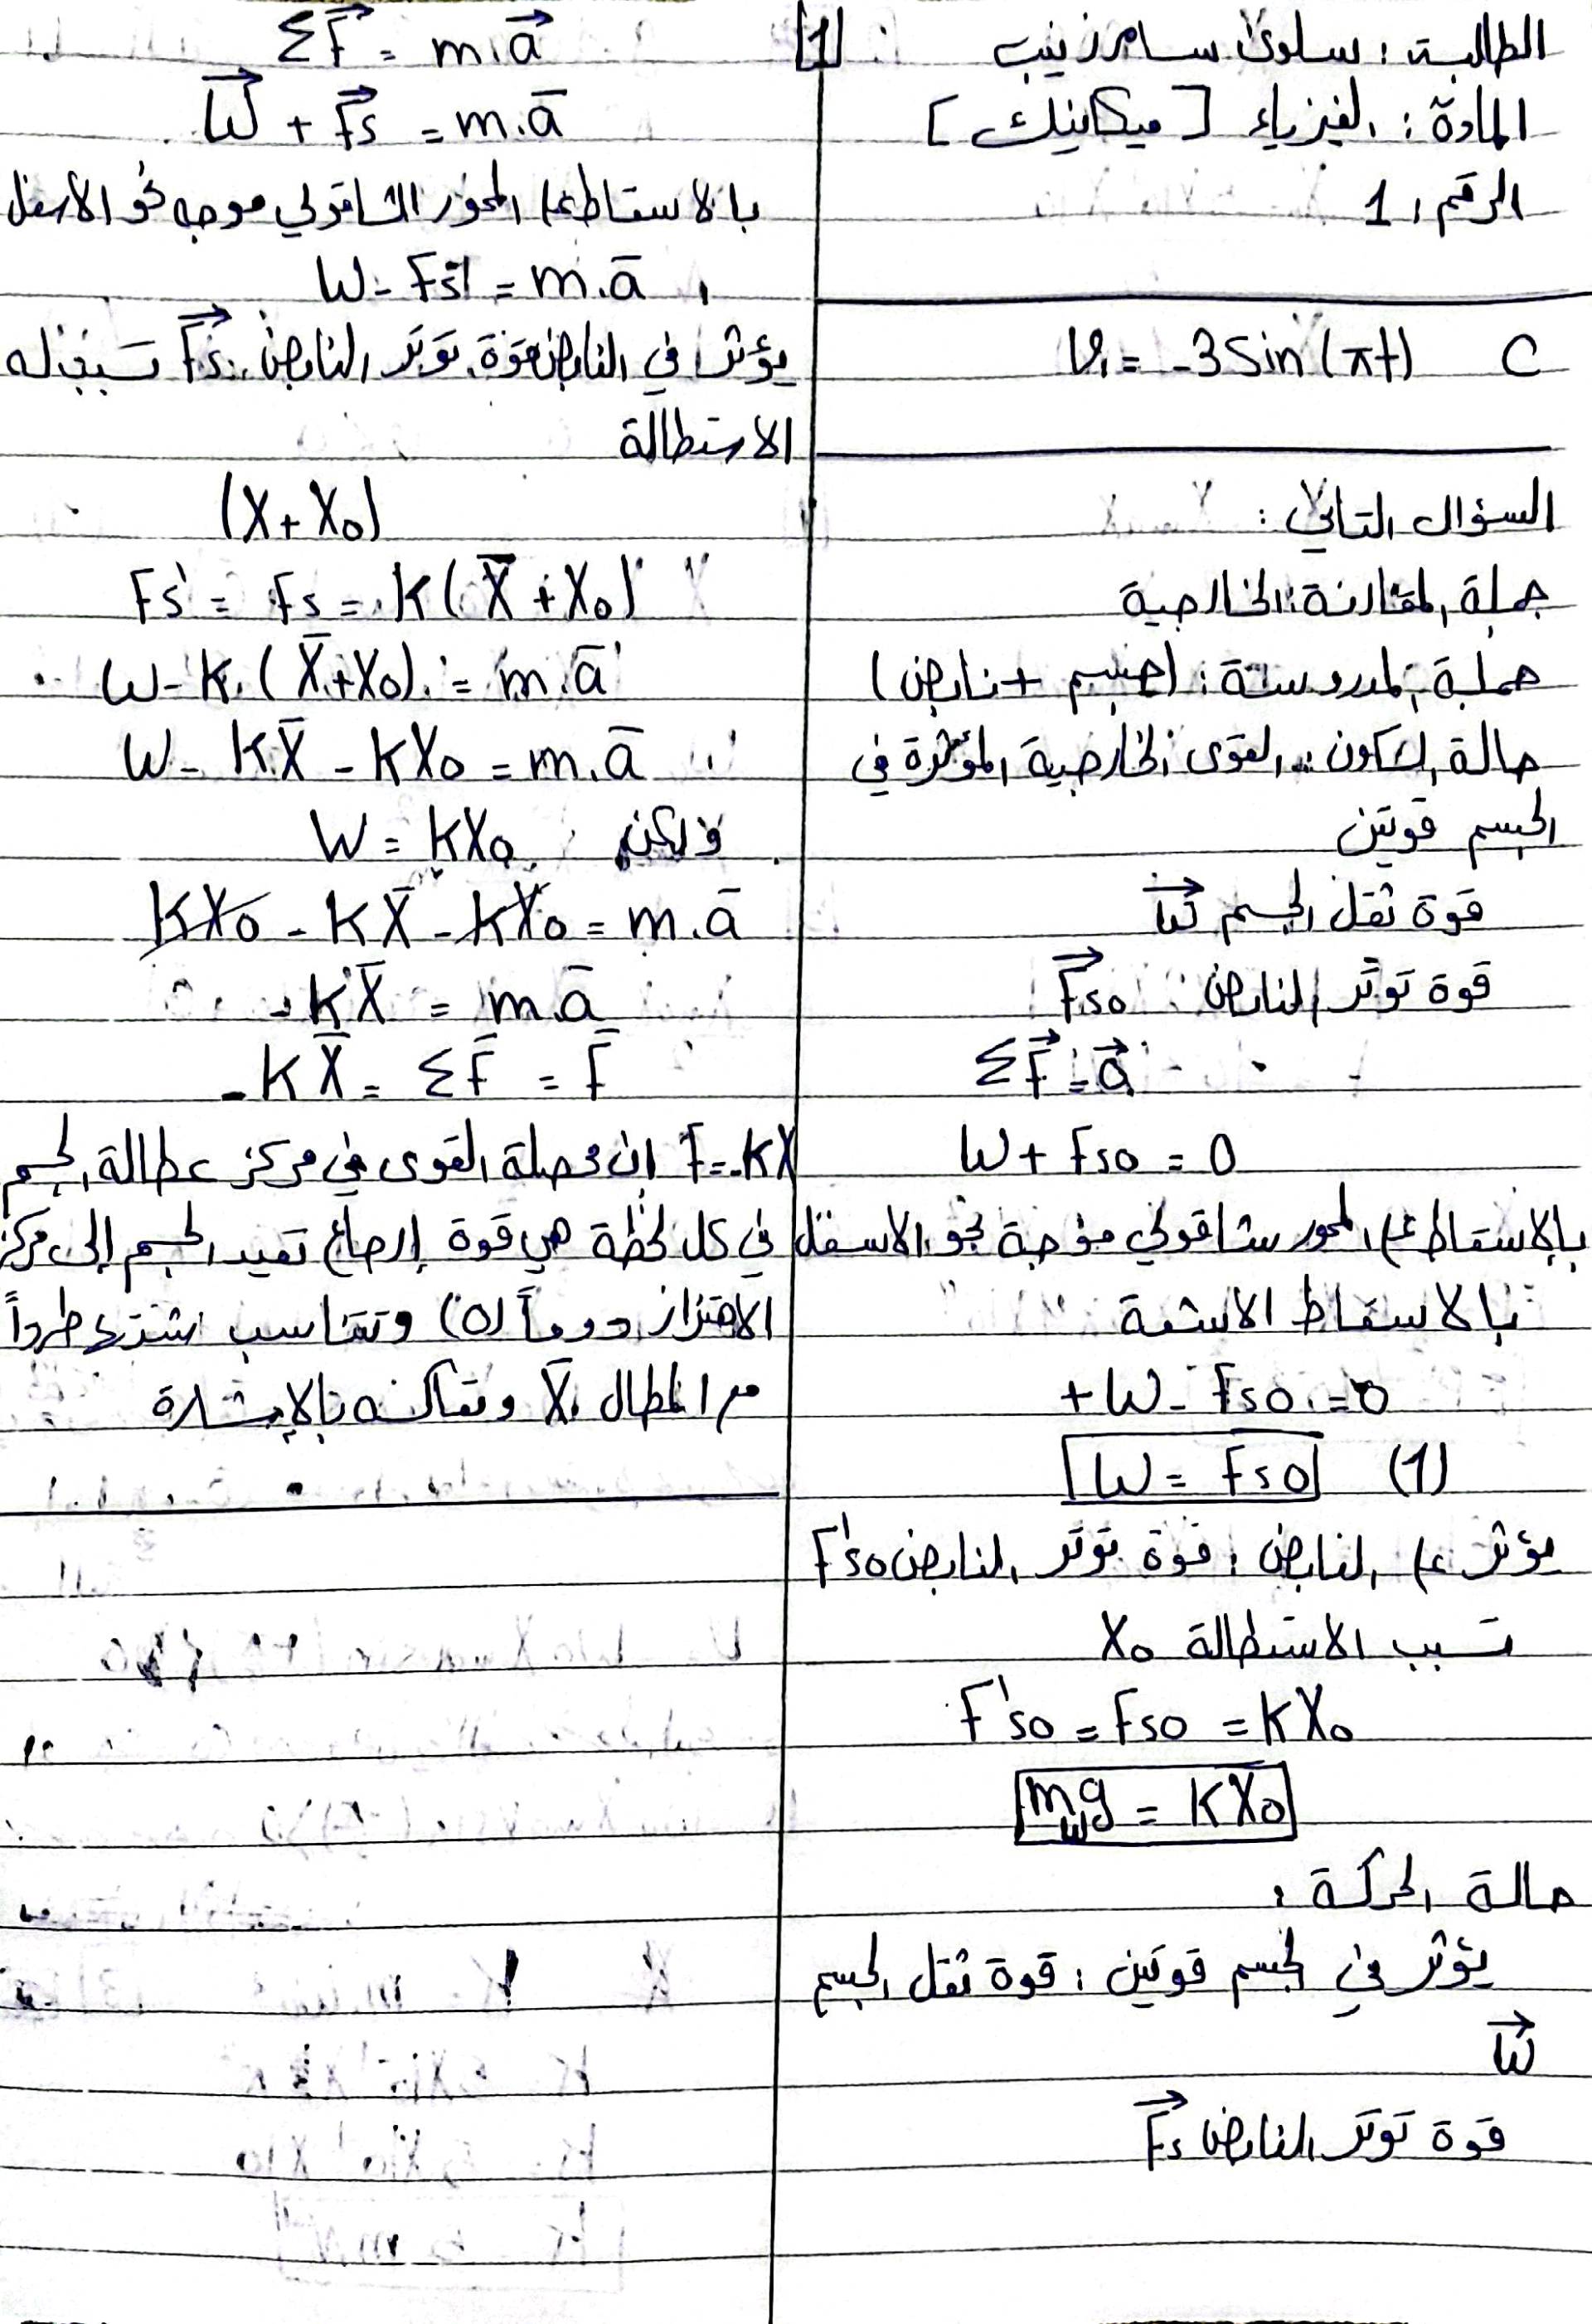 الطالبة : سلوى سامر زينب
المادة : الفيزياء [ميكانيك]
الرقم : 1
V₁ = -3 Sin (πt) C
السؤال الثاني :
جملة المقارنة : الخارجية
جملة المدروسة : (جسم + نابض)
حالة السكون : القوى الخارجية المؤثرة في
الجسم قوتين
قوة ثقل الجسم W⃗
قوة توتر النابض F⃗s₀
ΣF⃗ = a⃗
W + Fs₀ = 0
بالإسقاط على المحور شاقولي موجبة نحو الاسفل
بالاسقاط الاشعة
+W - Fs₀ = 0
W = Fs₀ (1)
يؤثر على النابض : قوة توتر النابض F's₀
تسبب الاستطالة X₀
F's₀ = Fs₀ = KX₀
mg = KX₀
W
حالة الحركة :
يؤثر في الجسم قوتين : قوة ثقل الجسم
W⃗
قوة توتر النابض F⃗s
[1]
ΣF⃗ = m.a⃗
W⃗ + F⃗s = m.a̅
بالاسقاط على المحور الشاقولي موجه نحو الاسفل
W - Fs' = m.a̅
يؤثر في النابض قوة توتر النابض F⃗s' تسبب له
الاستطالة
(X + X₀)
Fs' = Fs = K(X̅ + X₀)
W - K.(X̅ + X₀) = m.a̅
W - KX̅ - KX₀ = m.a̅
ولكن W = KX₀
KX₀ - KX̅ - KX₀ = m.a̅
-KX̅ = m.a̅
-KX̅ = ΣF̅ = F̅
F = -KX ان محصلة القوى في مركز عطالة الجسم
في كل لحظة هي قوة إرجاع تعيد الجسم إلى مركز
الاهتزاز دوماً (O) وتتناسب شدتها طرداً
مع المطال X̅ وتعاكسه بالإشارة